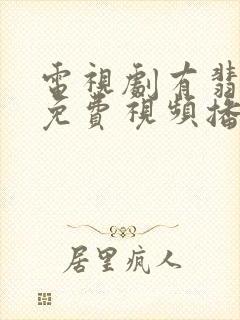 電視劇有翡
免費視頻播
居里疯人